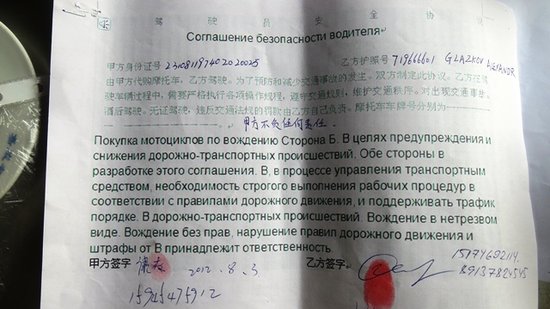 驾 驶 员 安 全 协 议
Соглашение безопасности водителя
甲方身份证号 乙方护照号 719666601 GLAZKOV
由甲方代购摩托车,乙方驾驶。为了预防和减少交通事故的发生,双方制定此协议。乙方在驾
驶车辆过程中,需要严格执行各项操作规程,遵守交通规则,维护交通秩序。对出现交通事故、
酒后驾驶、无证驾驶、违反交通法规的罚款由乙方自己负责。摩托车车牌号分别为
甲方不负任何责任.
Покупка мотоциклов по вождению Сторона Б. В целях предупреждения и
снижения дорожно-транспортных происшествий. Обе стороны в
разработке этого соглашения. В, в процессе управления транспортным
средством, необходимость строгого выполнения рабочих процедур в
соответствии с правилами дорожного движения, и поддерживать трафик
порядке. В дорожно-транспортных происшествий. Вождение в нетрезвом
виде. Вождение без прав, нарушение правил дорожного движения и
штрафы от В принадлежит ответственность.
甲方签字 2012.8.3 乙方签字 15174692114
15945475912 89137824545